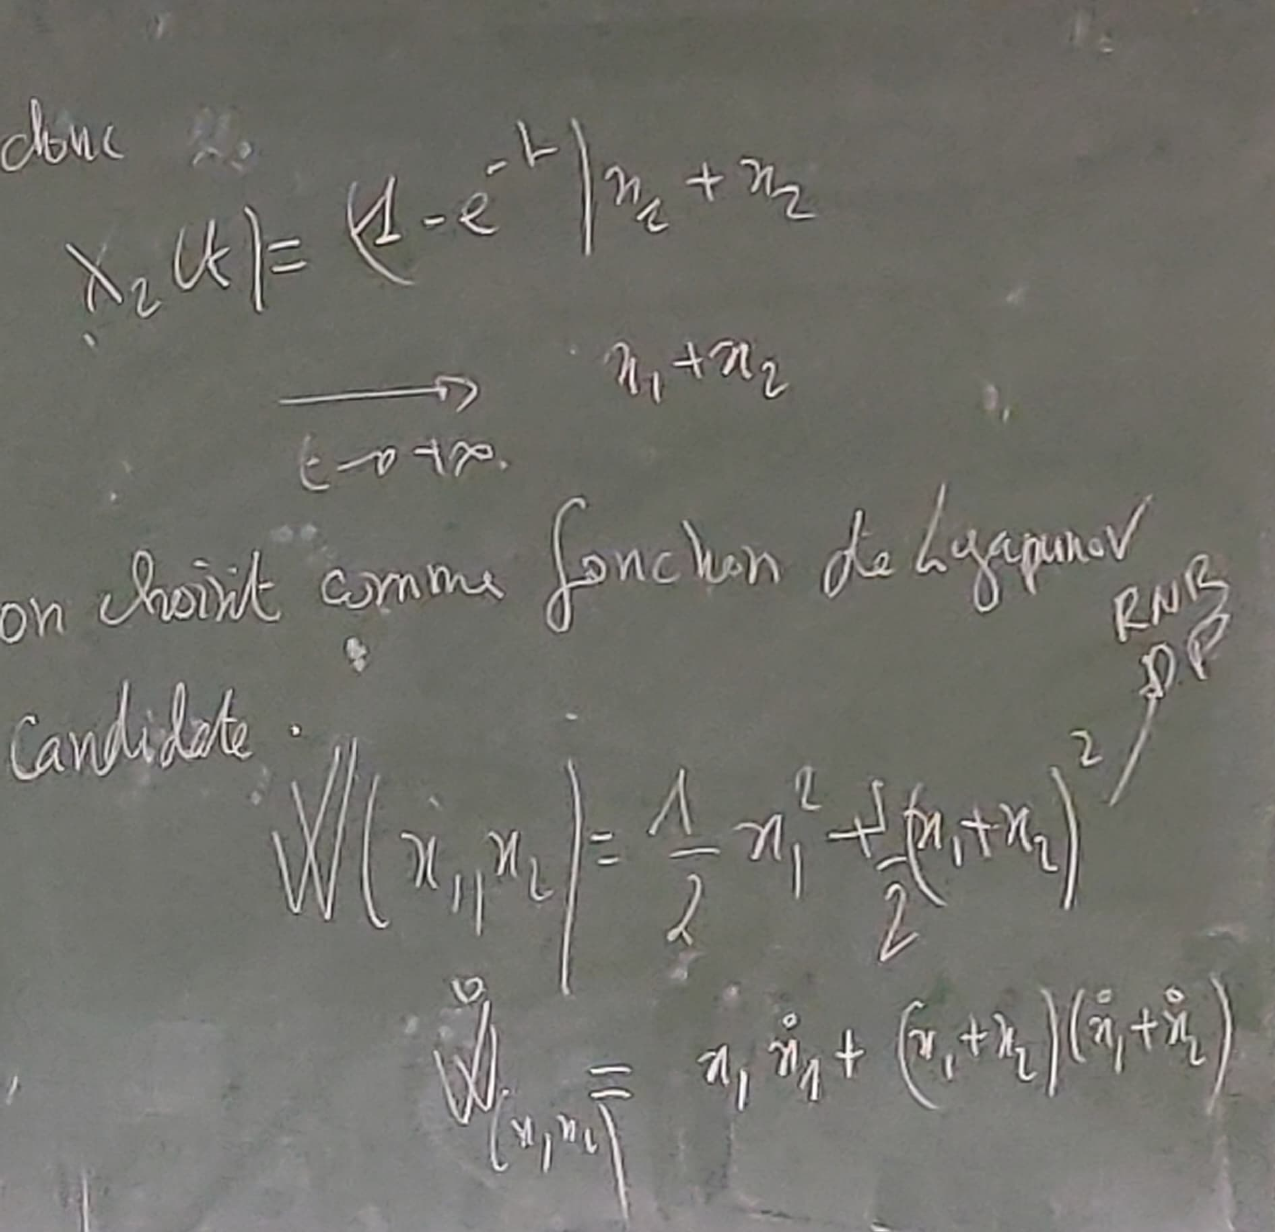 donc
X₂(t) = (1 - e⁻ᵗ) x₂ + x₂
⟶ x₁ + x₂
t → +∞.
on choisit comme fonction de Lyapunov
RNB
D.P
candidate .
W(x₁, x₂) = 1/2 x₁² + 1/2 (x₁ + x₂)²
Ẇ(x₁, x₂) = x₁ ẋ₁ + (x₁ + x₂)(ẋ₁ + ẋ₂)